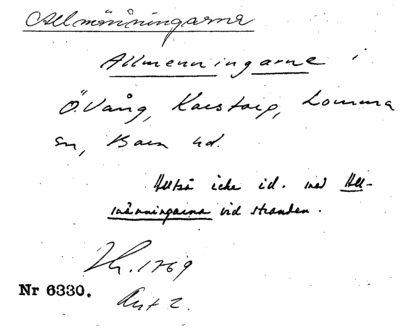 Allmänningarna
Allmenningarne i
Ö. Vång, Karstorp, Lomma
sn, Bara hd.
Alltså icke id. med All-
männingarna vid stranden.
Nr 6330.